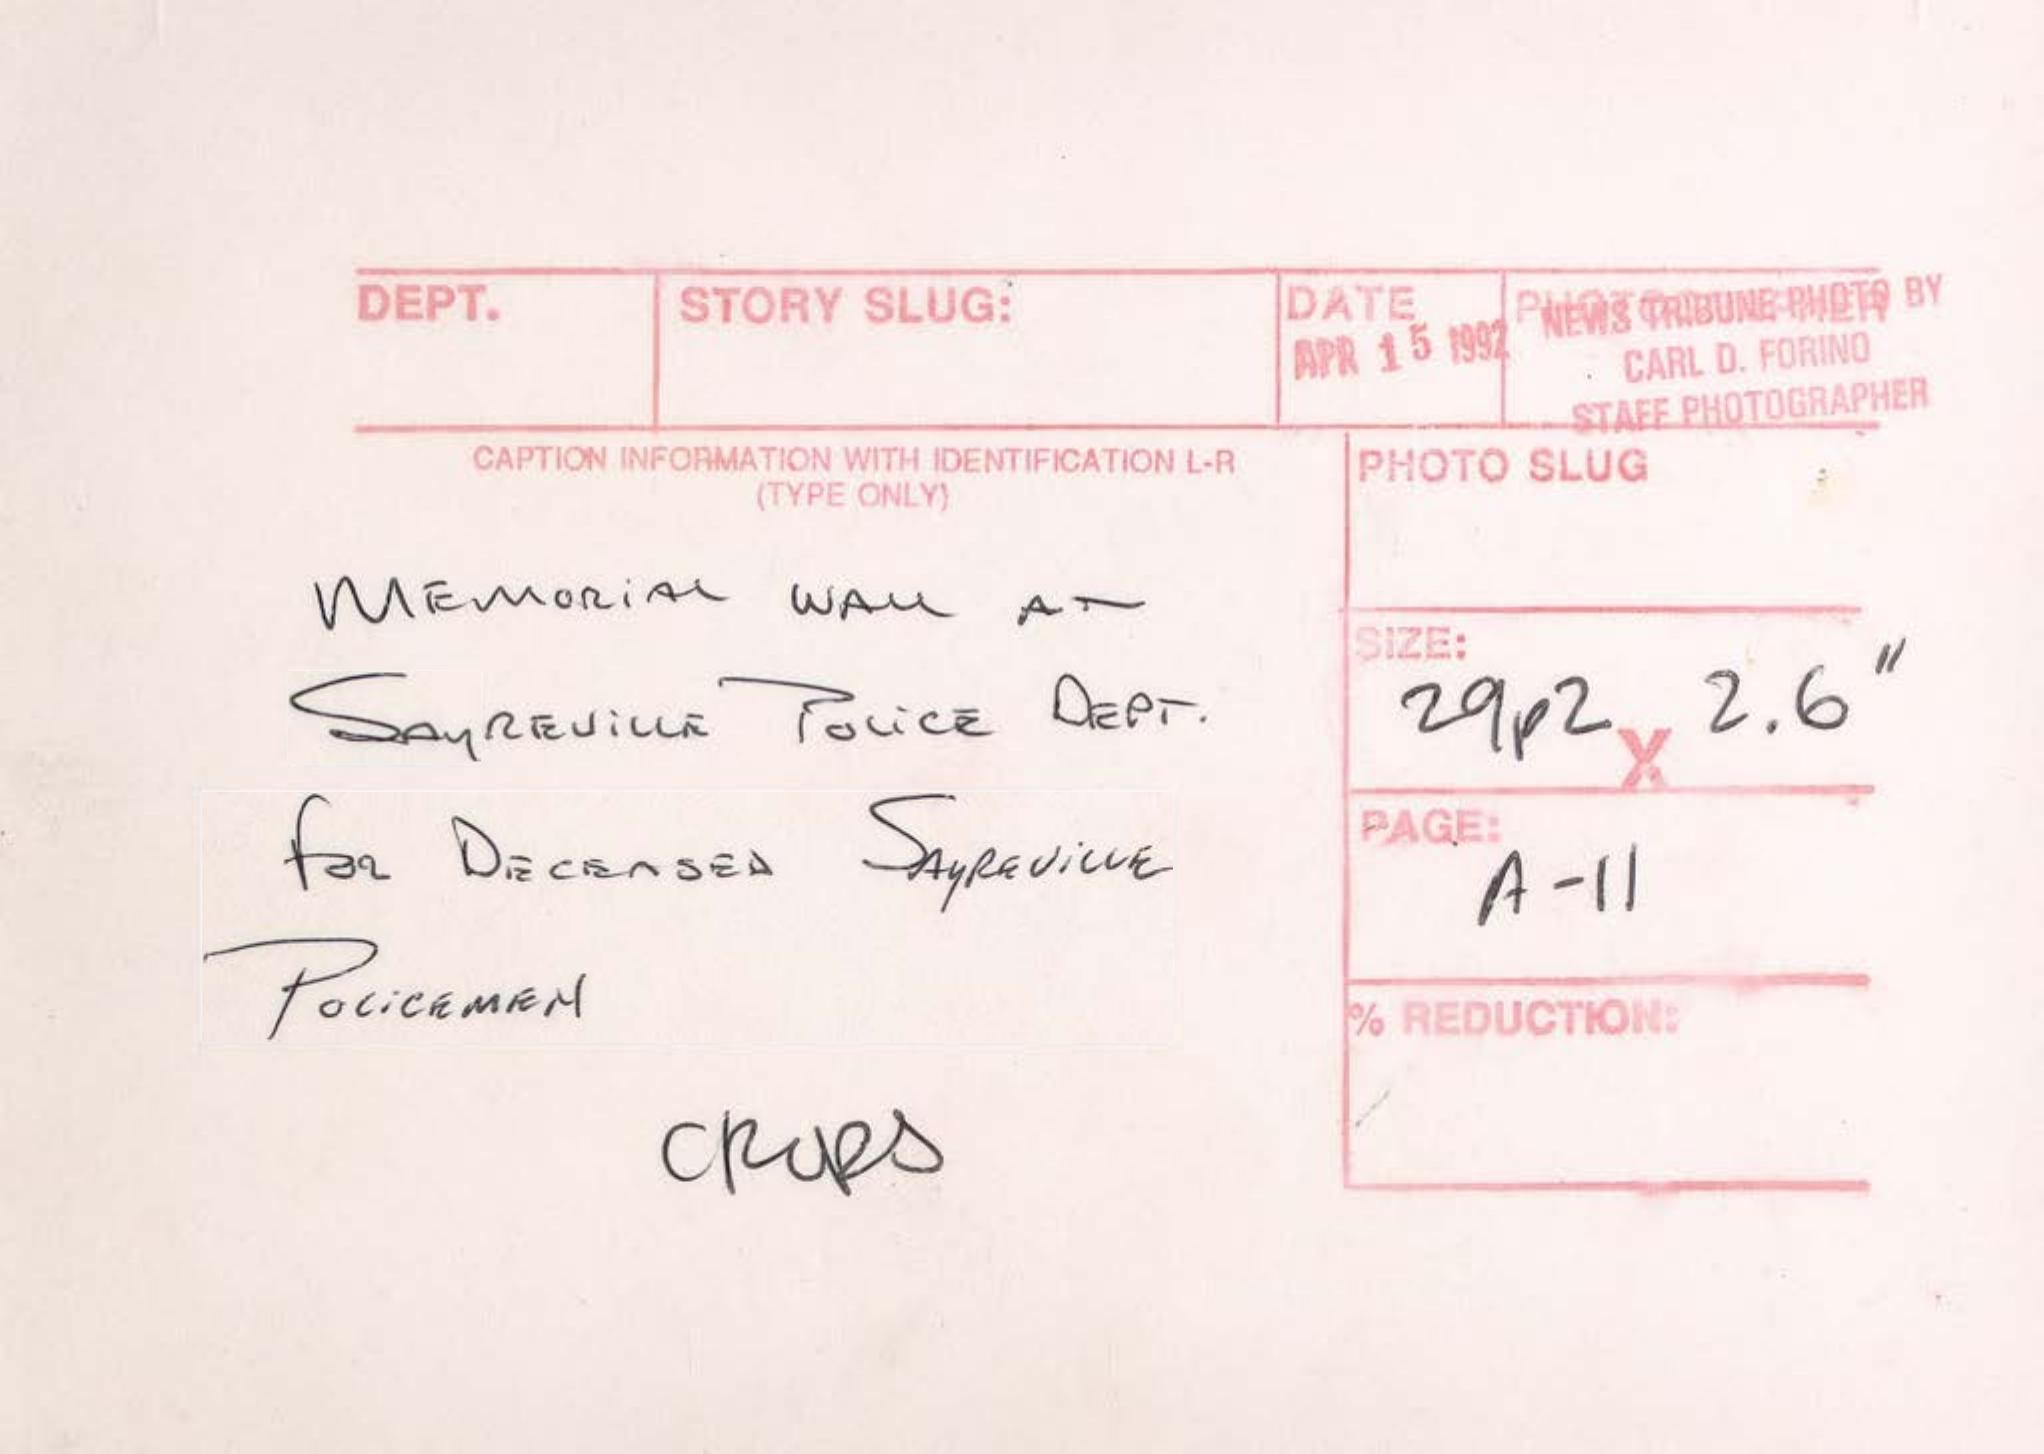 DEPT.
STORY SLUG:
DATE
APR 15 1992
NEWS TRIBUNE PHOTO BY
CARL D. FORINO
STAFF PHOTOGRAPHER
CAPTION INFORMATION WITH IDENTIFICATION L-R
(TYPE ONLY)
PHOTO SLUG
MEMORIAL WALL AT
SAYREVILLE POLICE DEPT.
for DECEASED SAYREVILLE
POLICEMEN
CROPS
SIZE:
29p2 X 2.6"
PAGE:
A-11
% REDUCTION: